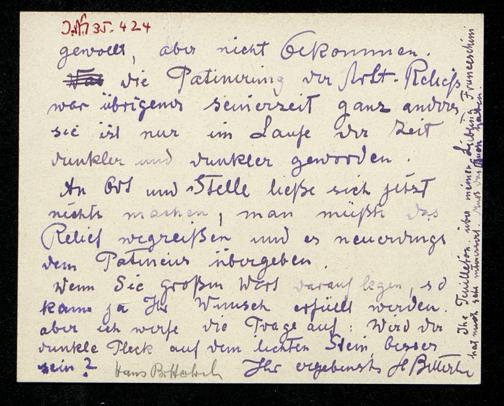 I.N. 135.424
gewollt, aber nicht bekommen.
die Patinierung der Arlt-Reliefs
war übrigens seinerzeit ganz anders,
sie ist nur im Laufe der Zeit
dunkler und dunkler geworden.
An Ort und Stelle ließe sich jetzt
nichts machen, man müßte das
Relief wegreißen und es neuerdings
dem Patineur übergeben.
Wenn Sie großen Wert darauf legen, so
kann ja Ihr Wunsch erfüllt werden.
aber ich werfe die Frage auf: Wird der
dunkle Fleck auf dem lichten Stein besser
sein? Ihr ergebenster H Bitterlich
Hans Bitterlich
Ihr Feuilleton über meinen Liebling Franceschini
hat mich sehr